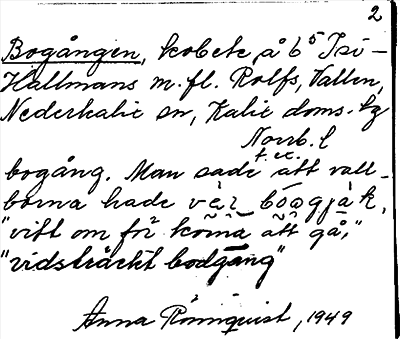 2
Bogången, kobete, å b5 Isi-
Hallmans m.fl. Rolfs, Vallen,
Nederkalix sn, Kalix doms. tg
Norrb. l
bogång. Man sade att vall-
borna hade
"vitt om för koma att gå,"
"vidsträckt bodgång"
Anna Rönnquist, 1949